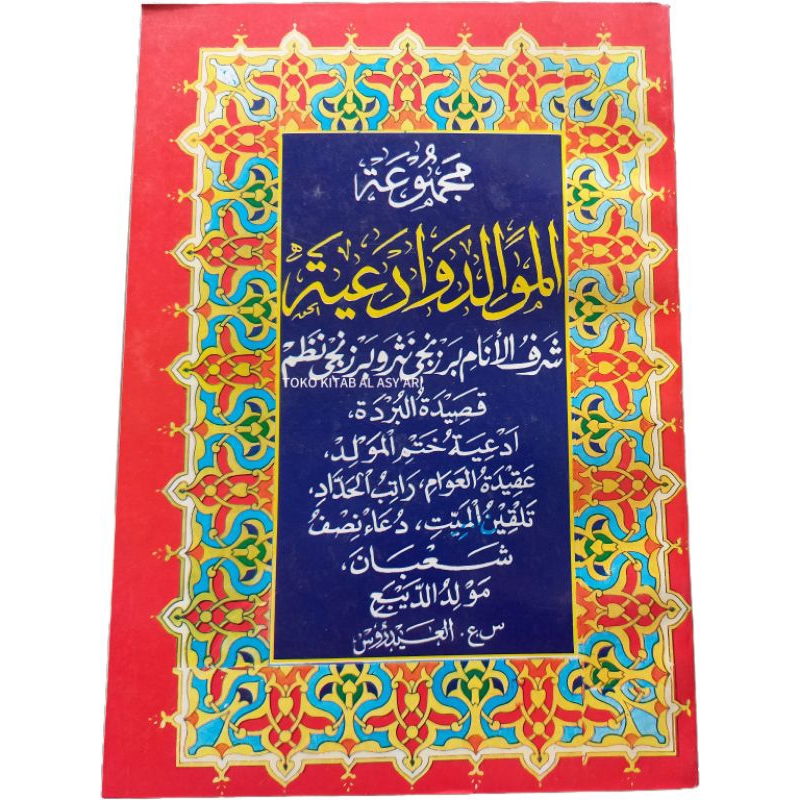 مَجْمُوْعَة
المَوَالِد وَادْعِيَة الخ
شَرَفُ الأَنَام بَرْزَنْجِي نَثْر وبَرْزَنْجِي نَظَم
TOKO KITAB AL ASY'ARI
قَصِيْدَةُ البُرْدَة،
اَدْعِيَة خُتْمِ المَوْلِدْ،
عَقِيْدَةُ العَوَامِ، رَاتِبُ الحَدَّادِ،
تَلْقِيْنُ المَيِّتِ، دُعَاءْ نِصْفُ
شَعْبَانَ،
مَوْلِدُ الدِّيْبَعِ
س.ع. العَيْدَرُوْسْ